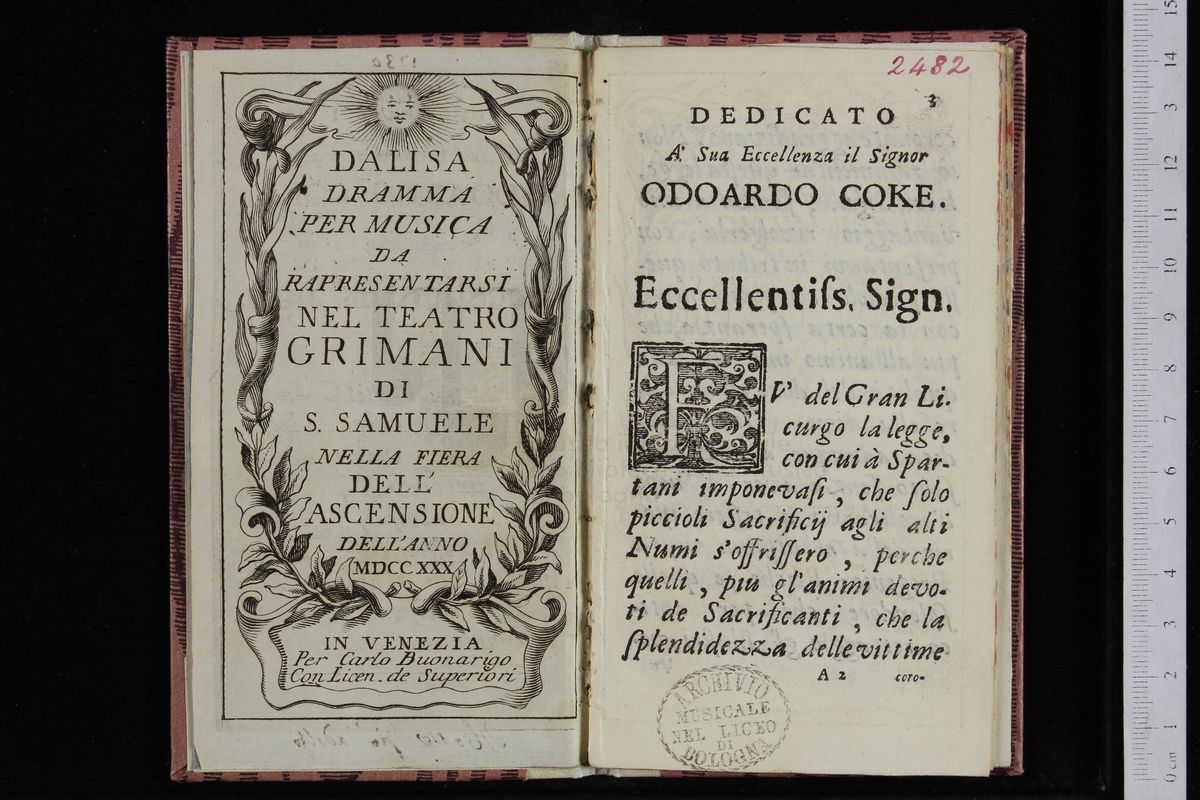 DALISA
DRAMMA
PER MUSICA
DA
RAPRESENTARSI
NEL TEATRO
GRIMANI
DI
S. SAMUELE
NELLA FIERA
DELL'
ASCENSIONE
DELL'ANNO
MDCC.XXX.
IN VENEZIA
Per Carlo Buonarigo
Con Licen. de Superiori
2482
3
DEDICATO
A' Sua Eccellenza il Signor
ODOARDO COKE.
Eccellentiſs. Sign.
FV' del Gran Li-
curgo la legge,
con cui à Spar-
tani imponevaſi, che ſolo
piccioli Sacrificij agli alti
Numi s'offriſſero, perche
quelli, più gl'animi devo-
ti de Sacrificanti, che la
ſplendidezza delle vittime
A 2 coro-
ARCHIVIO
MUSICALE
NEL LICEO
DI
BOLOGNA
15
14
13
12
11
10
9
8
7
6
5
4
3
2
1
0 cm